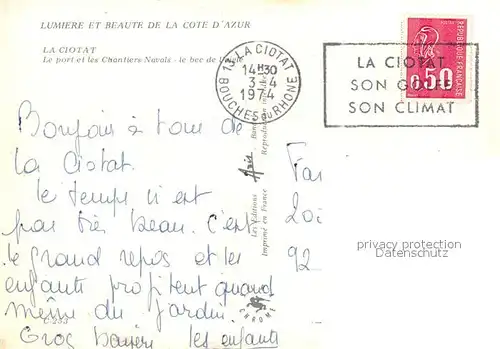 LUMIERE ET BEAUTE DE LA COTE D'AZUR
LA CIOTAT
Le port et les Chantiers Navals - le bec de l'
13 LA CIOTAT
14H30
3-4
1974
BOUCHES DU RHONE
LA CIOTAT
SON GOLFE
SON CLIMAT
REPUBLIQUE FRANÇAISE
0,50
Bonjour à tous de
la Ciotat.
le temps n'est
pas très beau. C'est
le grand repos et les
enfants profitent quand
même du jardin.
Gros baisers les enfants
Les Editions
Imprimé en France
Fam
92
privacy protection
Datenschutz
CHROME